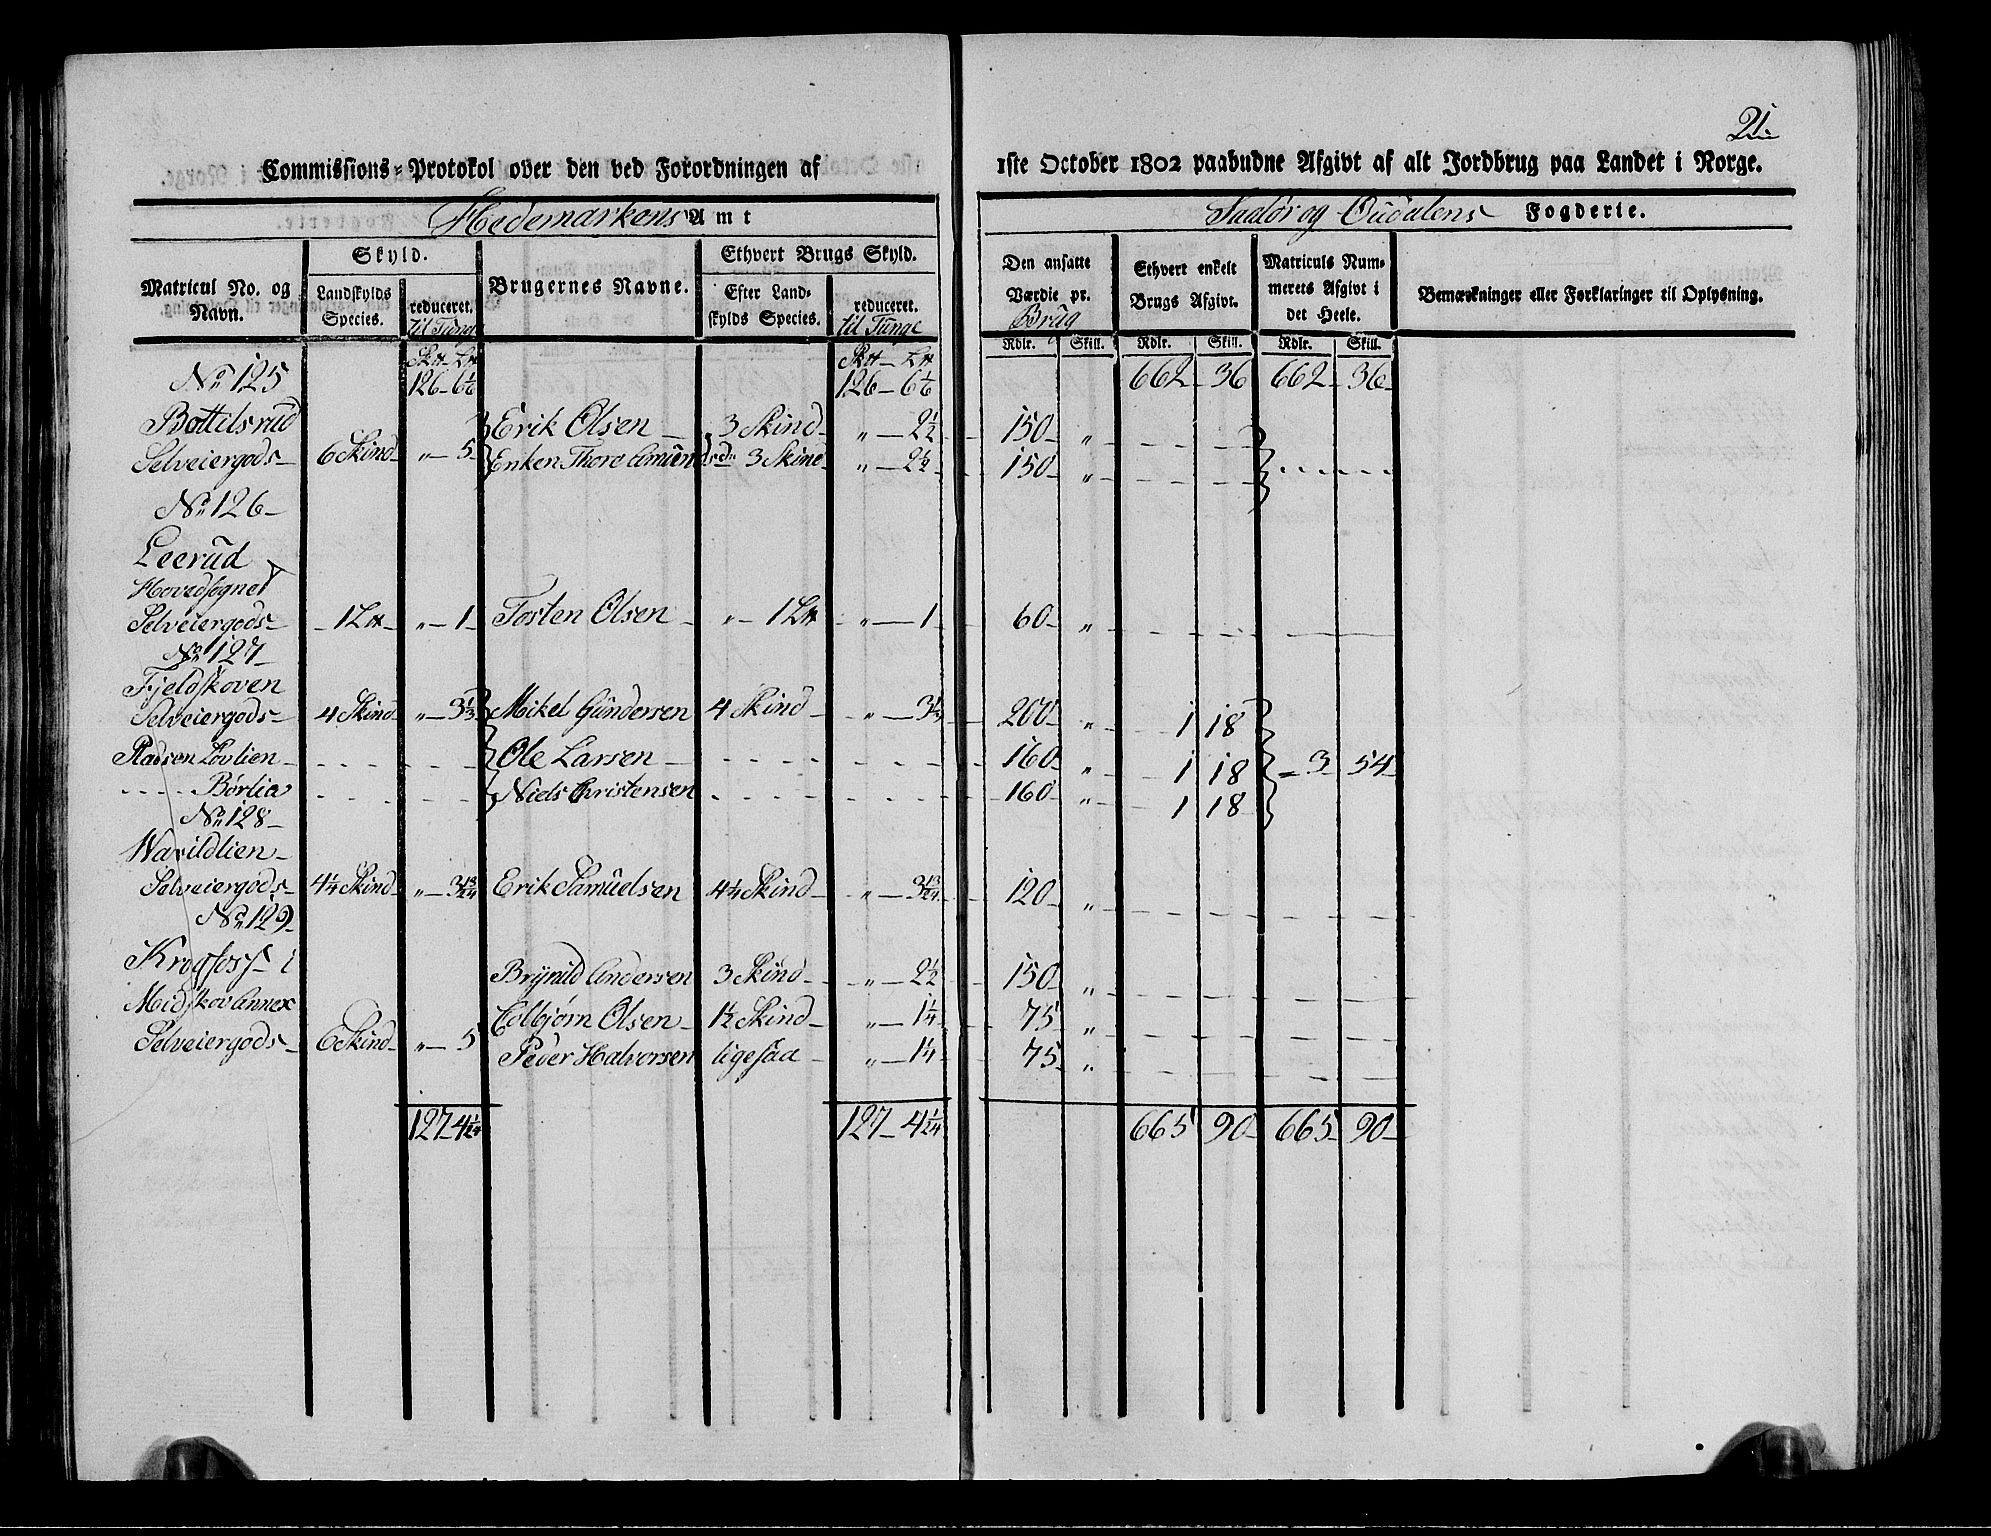 21
Commissions-Protokol over den ved Forordningen af 1ste October 1802 paabudne Afgivt af alt Jordbrug paa Landet i Norge.
Hedemarkens Amt Soløer og Oudalens Fogderie.
Matricul No. og Navn. Skyld. Landskylds Species. reduceret. til Tunge Brugernes Navne. Ethvert Brugs Skyld. Efter Landskylds Species. reduceret. til Tunge Den ansatte Værdie pr. Brug Ethvert enkelt Brugs Afgivt. Matriculs Nummerets Afgivt i det Heele. Bemærkninger eller Forklaringer til Oplysning.
Rdlr. Skill. Rdlr. Skill. Rdlr. Skill.
No 125 126 - 6 1/6 126 - 6 1/6 662 - 36 662 - 36
Bottilsrud Erik Olsen 3 Skind „ - 2 1/2 150 „
Selveiergods 6 Skind „ - 5 Enken Thore Amundsdr 3 Skind „ - 2 1/2 150 „
No 126
Leerud
Hovedsognet
Selveiergods 1 L℔ „ - 1 Tosten Olsen „ 1 L℔ „ - 1 60 „
No 127
Fjeldskoven
Selveiergods 4 Skind „ - 3 1/3 Mikel Gundersen 4 Skind „ - 3 1/3 200 „ 1 18
Pladsen Løvlien Ole Larsen 160 „ 1 18 3 54
Børlia Niels Christensen 160 „ 1 18
No 128
Wavildlien
Selveiergods 4 1/4 Skind „ - 3 13/24 Erik Samuelsen 4 1/4 Skind „ - 3 13/24 120 „
No 129
Krogfoss i Brynild Andersen 3 Skind „ - 2 1/2 150 „
Midskov Annex Colbjørn Olsen 1 1/2 Skind „ - 1 1/4 75 „
Selveiergods 6 Skind „ - 5 Peder Halvorsen ligesaa „ - 1 1/4 75 „
127 - 4 1/24 127 - 4 1/24 665 90 665 90